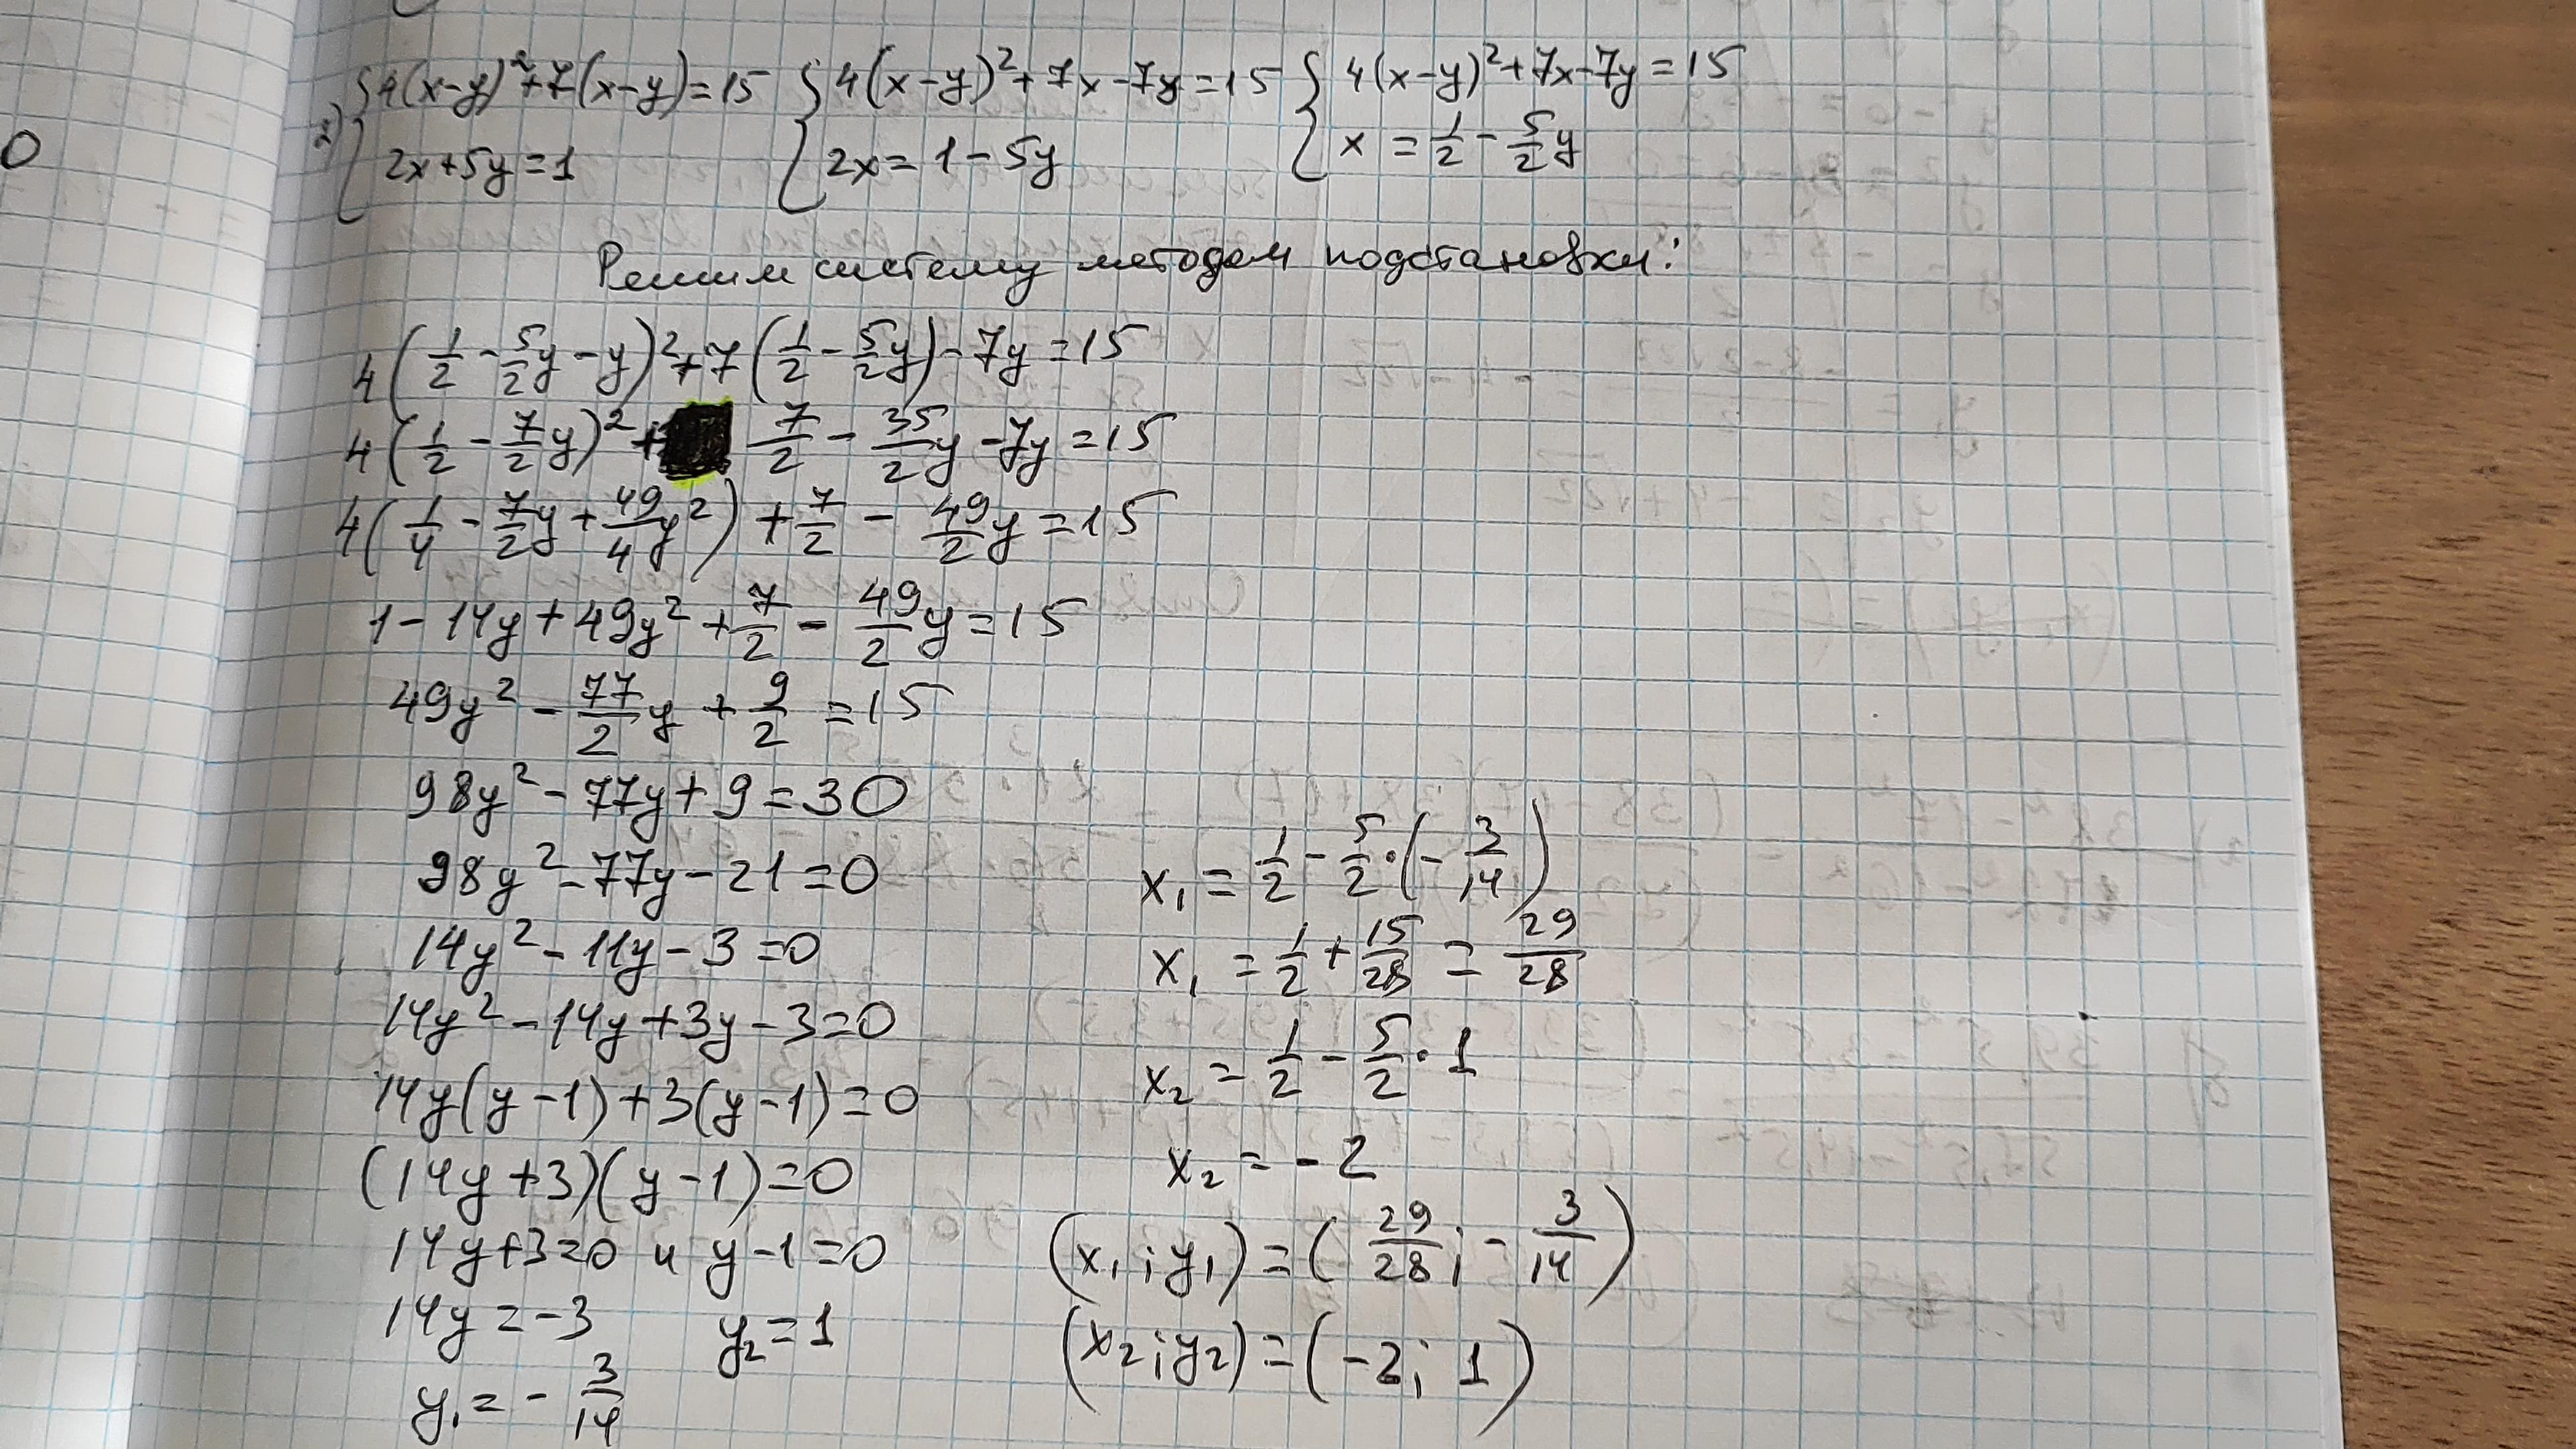 2) {4(x-y)²+7(x-y)=15 {4(x-y)²+7x-7y=15 {4(x-y)²+7x-7y=15
2x+5y=1 2x=1-5y x=1/2-5/2y
Решим систему методом подстановки:
4(1/2-5/2y-y)²+7(1/2-5/2y)-7y=15
4(1/2-7/2y)²+ 7/2-35/2y-7y=15
4(1/4-7/2y+49/4y²)+7/2-49/2y=15
1-14y+49y²+7/2-49/2y=15
49y²-77/2y+9/2=15
98y²-77y+9=30
98y²-77y-21=0
14y²-11y-3=0
14y²-14y+3y-3=0
14y(y-1)+3(y-1)=0
(14y+3)(y-1)=0
14y+3=0 и y-1=0
14y=-3 y₂=1
y₁=-3/14
x₁=1/2-5/2·(-3/14)
x₁=1/2+15/28=29/28
x₂=1/2-5/2·1
x₂=-2
(x₁;y₁)=(29/28;-3/14)
(x₂;y₂)=(-2;1)
0